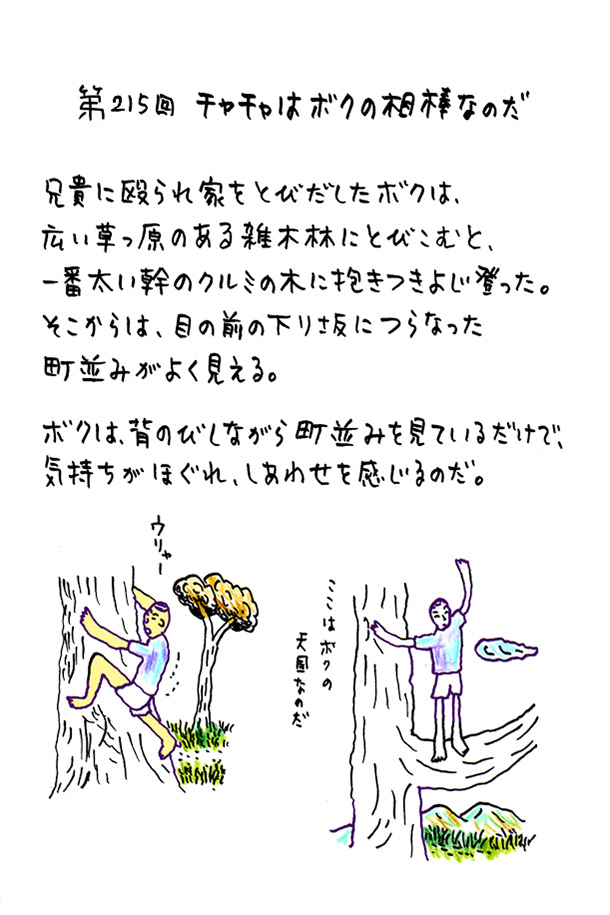 第215回 チャチャはボクの相棒なのだ
兄貴に殴られ家をとびだしたボクは、
広い草っ原のある雑木林にとびこむと、
一番太い幹のクルミの木に抱きつきよじ登った。
そこからは、目の前の下り坂につらなった
町並みがよく見える。
ボクは、背のびしながら町並みを見ているだけで、
気持ちがほぐれ、しあわせを感じるのだ。
ウリャー
ここはボクの
天国なのだ